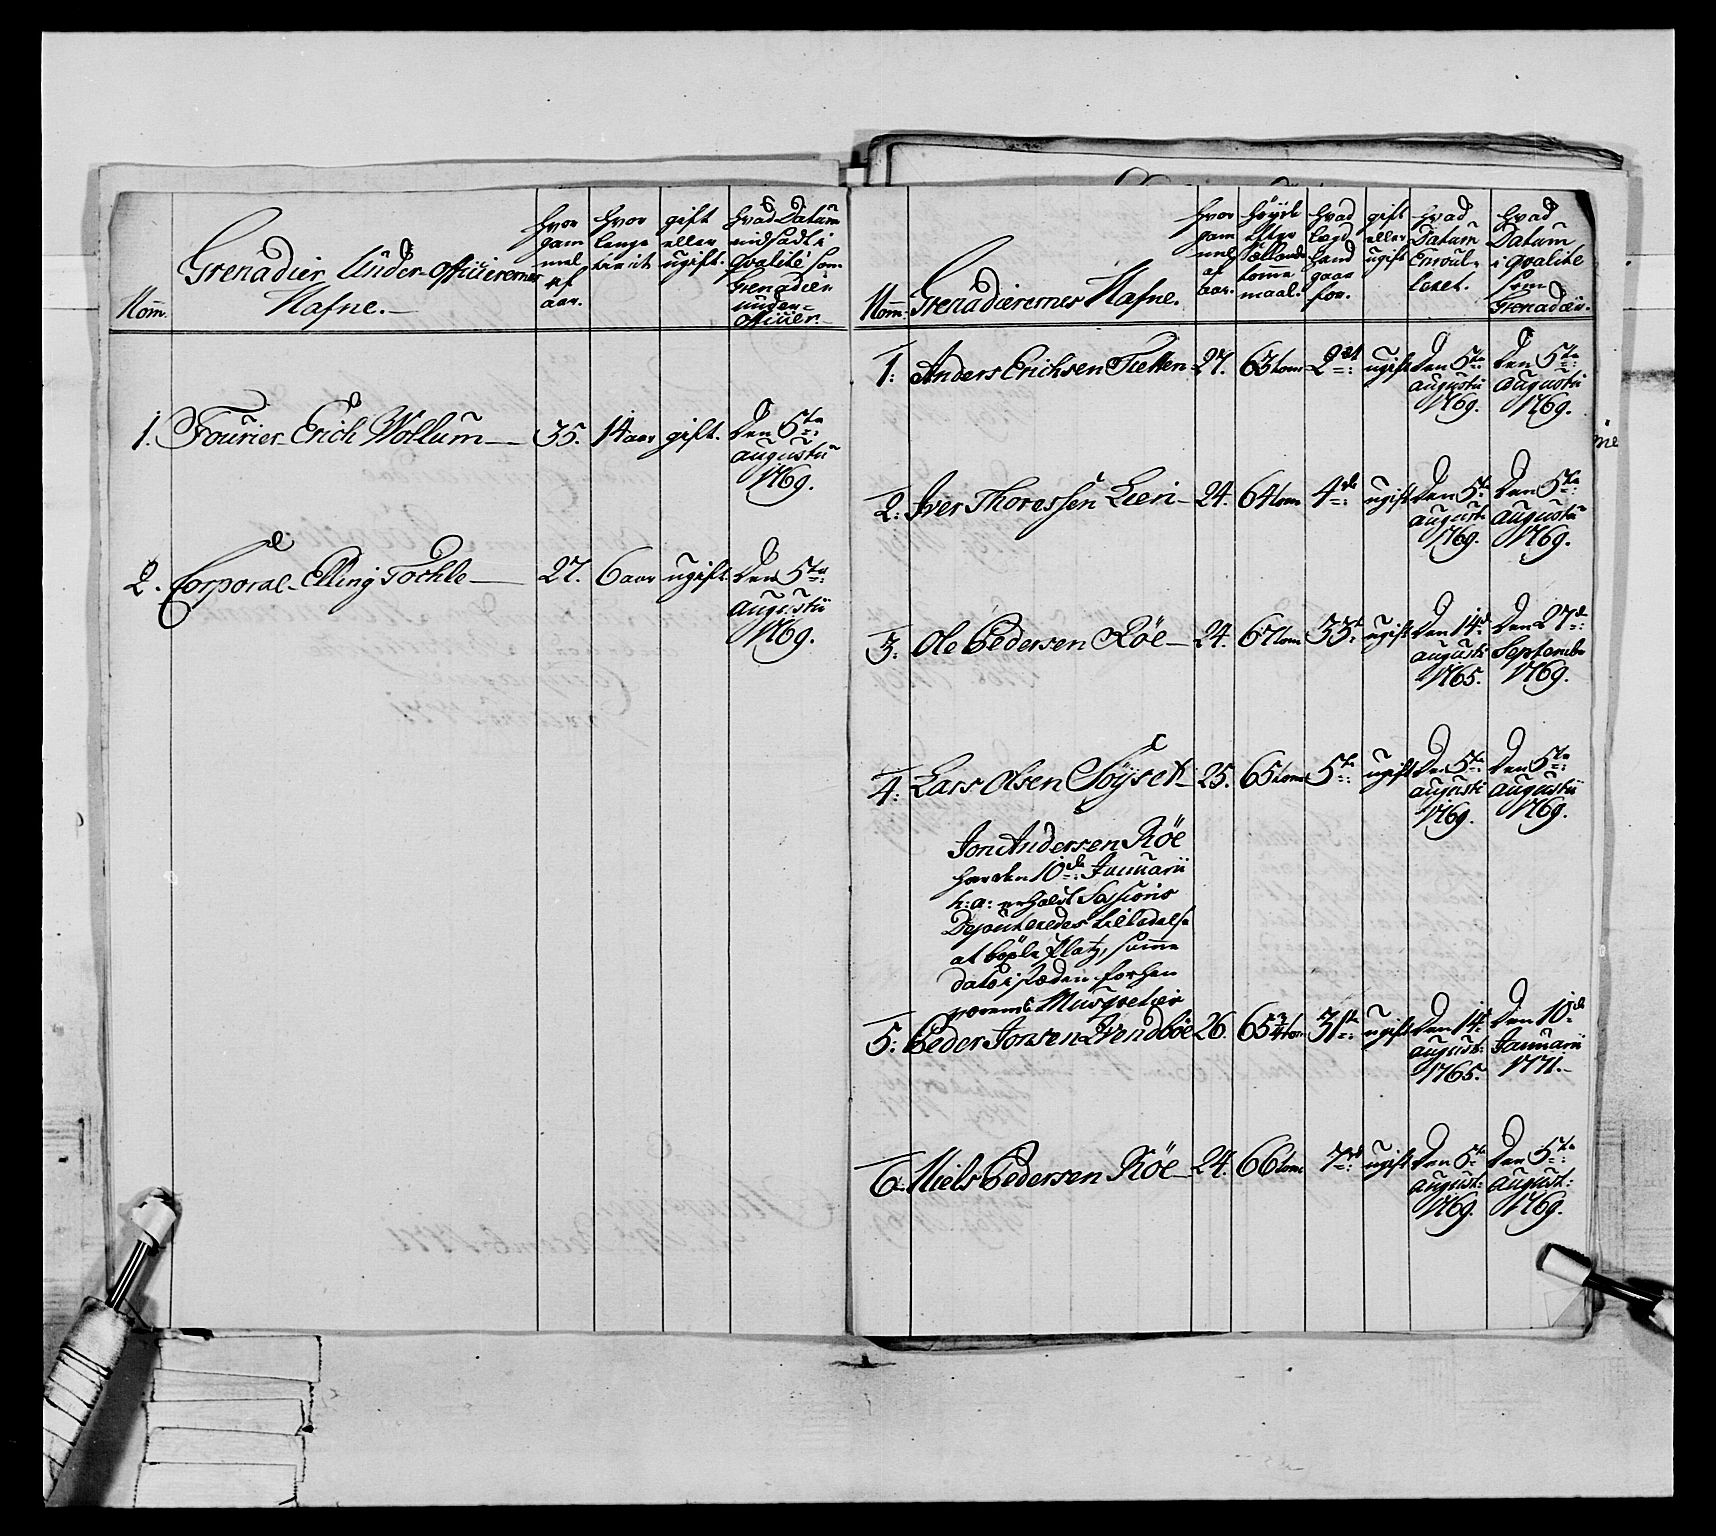 Nom:
Grenadier Under-officierernes
Nafne.
hvor gammel af aar.
hvor lenge tient
gift eller ugift.
hvad Datum indsadt i qvalité som Grenadier under-officier.
1. Fourier Erich Wollum 35. 14 aar gift. den 5te augustii 1769.
2. Corporal Elling Tochle 27. 6 aar ugift den 5te augustii 1769.
Nom:
Grenadierernes Nafne.
hvor gammel af aar.
höyde efter Sællands tomme maal.
hvad Lægd hand gaar for.
gift eller ugift
hvad Datum Enroulleret.
hvad Datum i qvalite som Grenadeer.
1: Anders Erichsen 27. 63 tom 2det ugift den 5te augustii 1769. den 5te augustii 1769.
2: Iver Thoressen Lien 24. 64 tom 4de ugift den 5te august: 1769. den 5te augustii 1769.
3: Ole Pedersen Röe 24. 67 tom 33: ugift den 14d augusti 1765. den 27de Septembr 1769.
4: Lars Olsen Söyset 25. 65 tom 5te ugift den 5te augusti 1769. den 5te augustii 1769.
Jon Andersen Röe
har den 10de Januarii
h: a: erholdt Sessions
Deputeredes tilladelse
at böxle Platz, samme
dato i stæden forhen
værende Musqvetier
5: Peder Jonsen 26. 65 3/4 tom 31te ugift den 14d august: 1765. den 10de Januarii 1771.
6: Niels Pedersen Röe 24. 66 tom 7de ugift den 5te august: 1769. den 5te august: 1769.